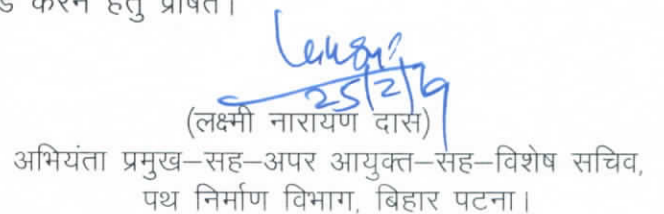 करने हेतु प्रेषित।
25/2/19
(लक्ष्मी नारायण दास)
अभियंता प्रमुख–सह–अपर आयुक्त–सह–विशेष सचिव,
पथ निर्माण विभाग, बिहार पटना।